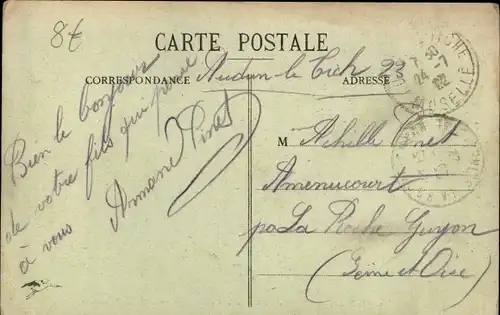 8€
CARTE POSTALE
CORRESPONDANCE
ADRESSE
Audun-le-Tich 23
Bien le bonjour
de votre fils qui pense
à vous
Armand Pinet
M Achille Pinet
Amenucourt
par La Roche Guyon
(Seine et Oise)
7 30
24 -7
22
MOSELLE